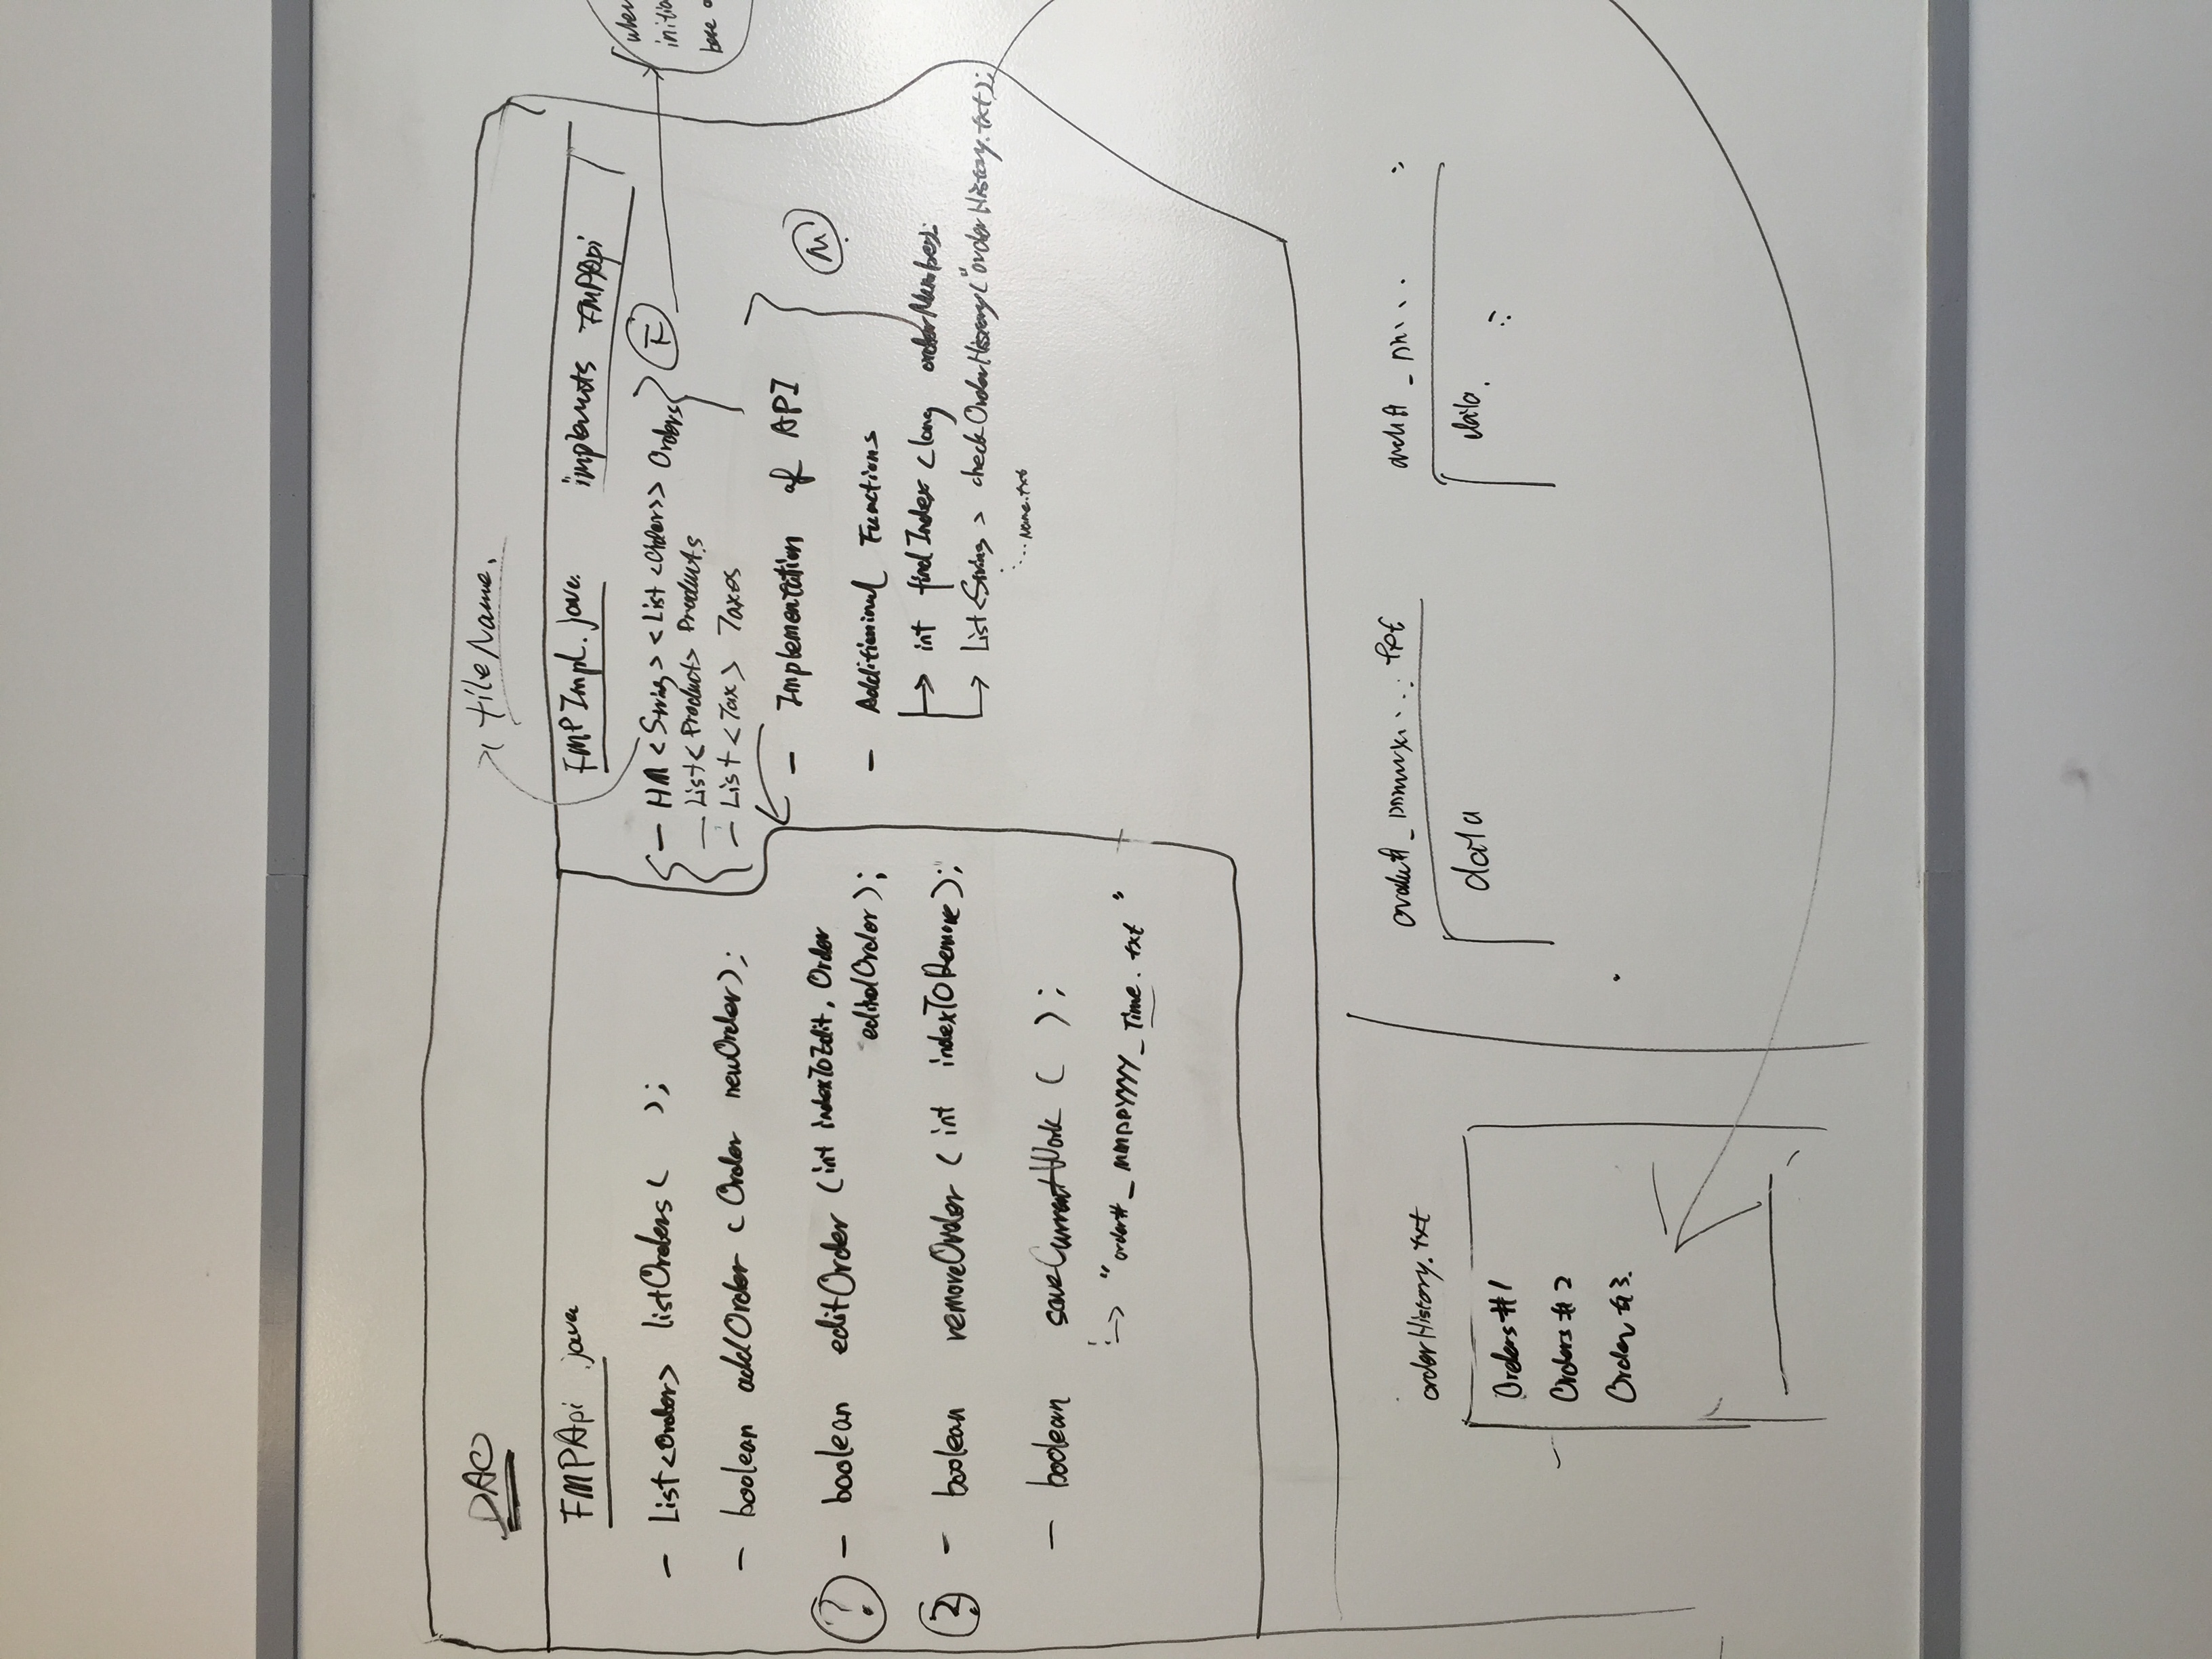 DAO
FMPApi .java
- List<Order> listOrders ( );
- boolean addOrder ( Order newOrder );
? - boolean editOrder (int indexToEdit, Order
editedOrder );
? - boolean removeOrder ( int indexToRemove );
- boolean saveCurrentWork ( );
→ "order#_MMDDYYYY_Time.txt"
fileName.
FMPImpl.java implements FMPApi
- HM <String> <List <Order>> Orders
- List<Product> Products
- List<Tax> Taxes
F
- Implementation of API
- Additioninal Functions
→ int findIndex (long orderNumber);
→ List<String> checkOrderHistory("orderHistory.txt);
... Name.txt
M
when
initia
base o
orderHistory.txt
Orders #1
Orders #2
Order #3.
data
data.